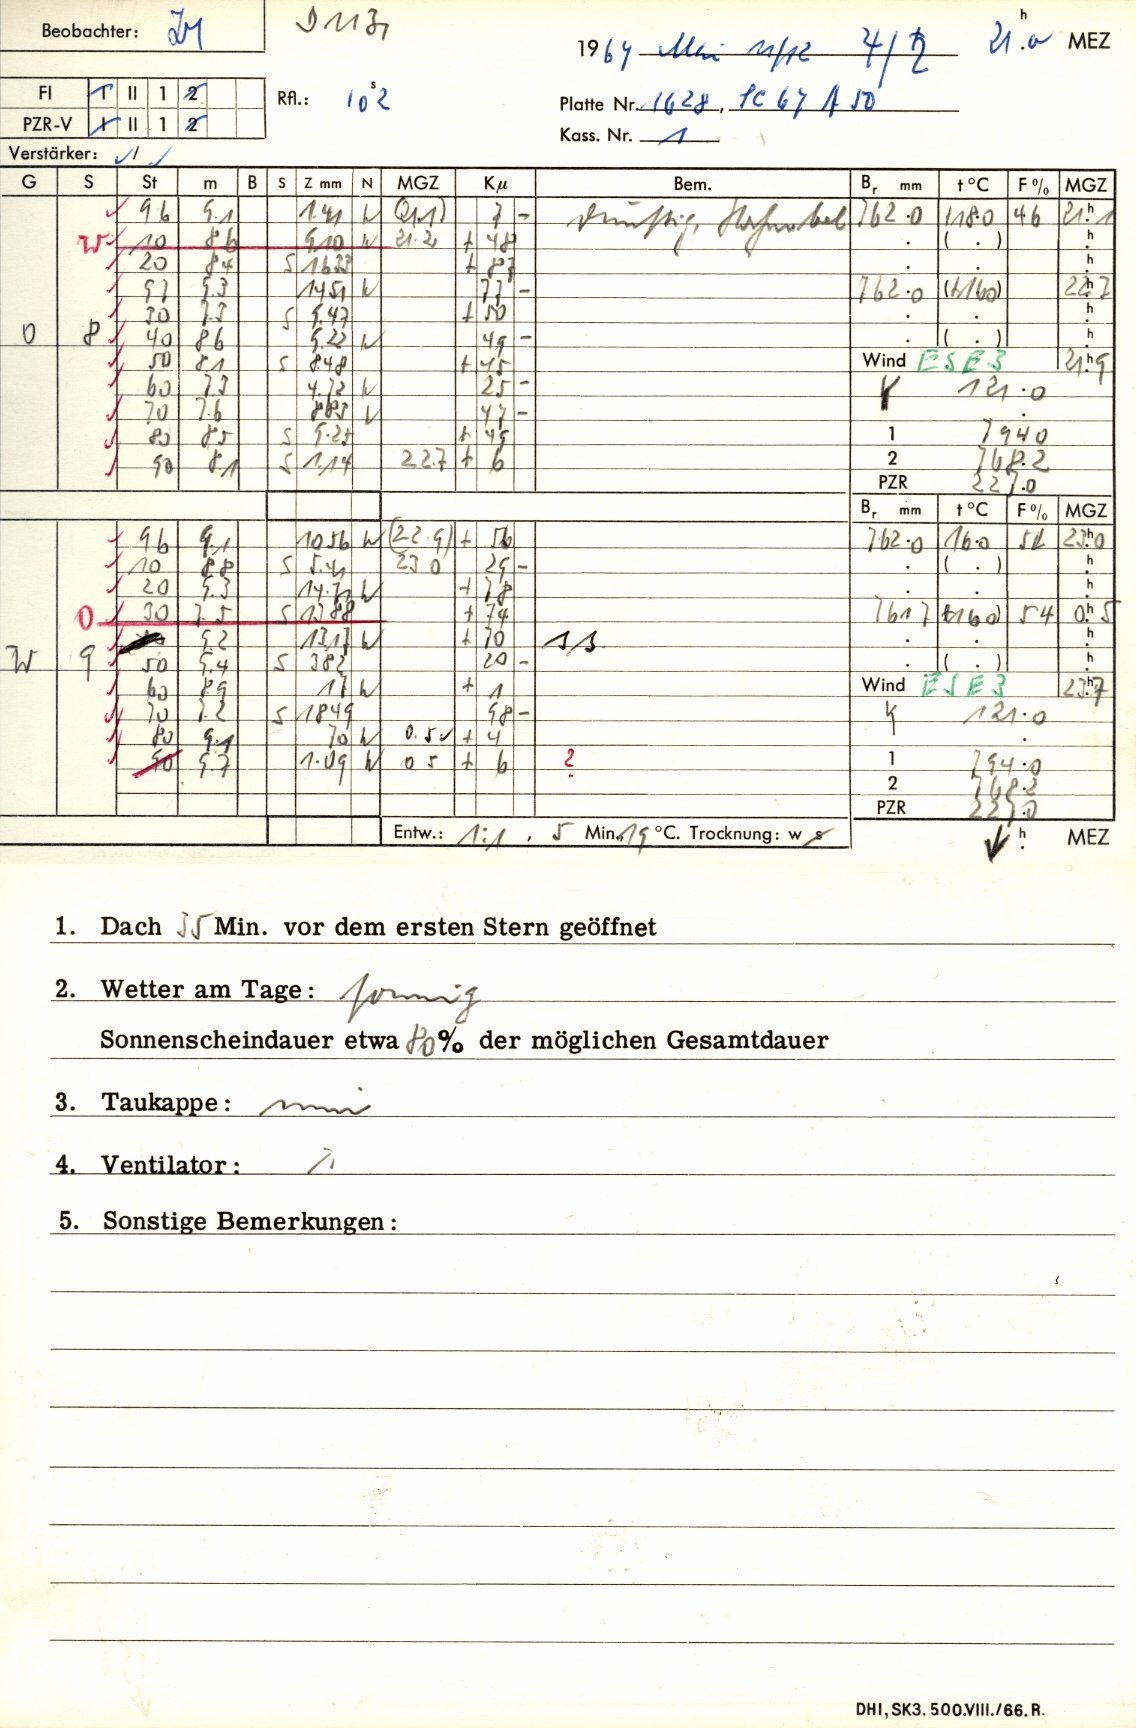 Beobachter:
1967 Mai 11/12 21.0 h MEZ
FI I II 1 2
Rfl.: 10 s 2
Platte Nr. 1628, SC 67 A 50
PZR-V I II 1 2
Kass. Nr. 1
Verstärker: /
G S St m B S Z mm N MGZ Kμ Bem. Br mm t °C F % MGZ
96 9.1 1.41 W (21.1) 7 – dunstig, 762.0 18.0 46 21 h 1
W 10 8.6 9.10 W 21.2 + 48 . ( . ) h
20 8.4 S 16.33 + 87 . . h
97 9.3 14.51 W 77 – 762.0 (+16.0) 22 h 7
30 7.5 S 9.47 + 50 . . h
0 8 40 8.6 9.22 W 49 – . ( . ) h
50 8.1 S 8.48 + 45 Wind ESE 3 21 h 9
60 7.3 4.72 W 25 – K 121.0
70 7.6 8.83 W 47 – .
80 8.5 S 9.25 + 49 1 794.0
90 8.1 S 1.14 22.7 + 6 2 768.2
PZR 227.0
Br mm t °C F % MGZ
96 9.1 10.56 W (22.9) + 56 762.0 16.0 51 23 h 0
10 8.8 S 5.41 23.0 29 – . ( . ) h
20 9.3 14.71 W + 78 . . h
0 30 7.5 S 13.88 + 74 761.7 (+16.0) 54 0 h 5
9.2 13.17 W + 70 . . h
W 9 50 9.4 S 3.82 20 – . ( . ) h
60 8.9 17 W + 1 Wind ESE 3 23 h 7
70 7.2 S 18.49 98 – K 121.0
80 9.1 70 W 0.5 + 4 .
90 9.7 1.09 W 0.5 + 6 ? 1 794.0
2 768.2
PZR 227.0
Entw.: 1:1, 5 Min. 19 °C. Trocknung: w s h MEZ
1. Dach 35 Min. vor dem ersten Stern geöffnet
2. Wetter am Tage: sonnig
Sonnenscheindauer etwa 80% der möglichen Gesamtdauer
3. Taukappe: nein
4. Ventilator:
5. Sonstige Bemerkungen:
DHI, SK3. 500.VIII./66. R.